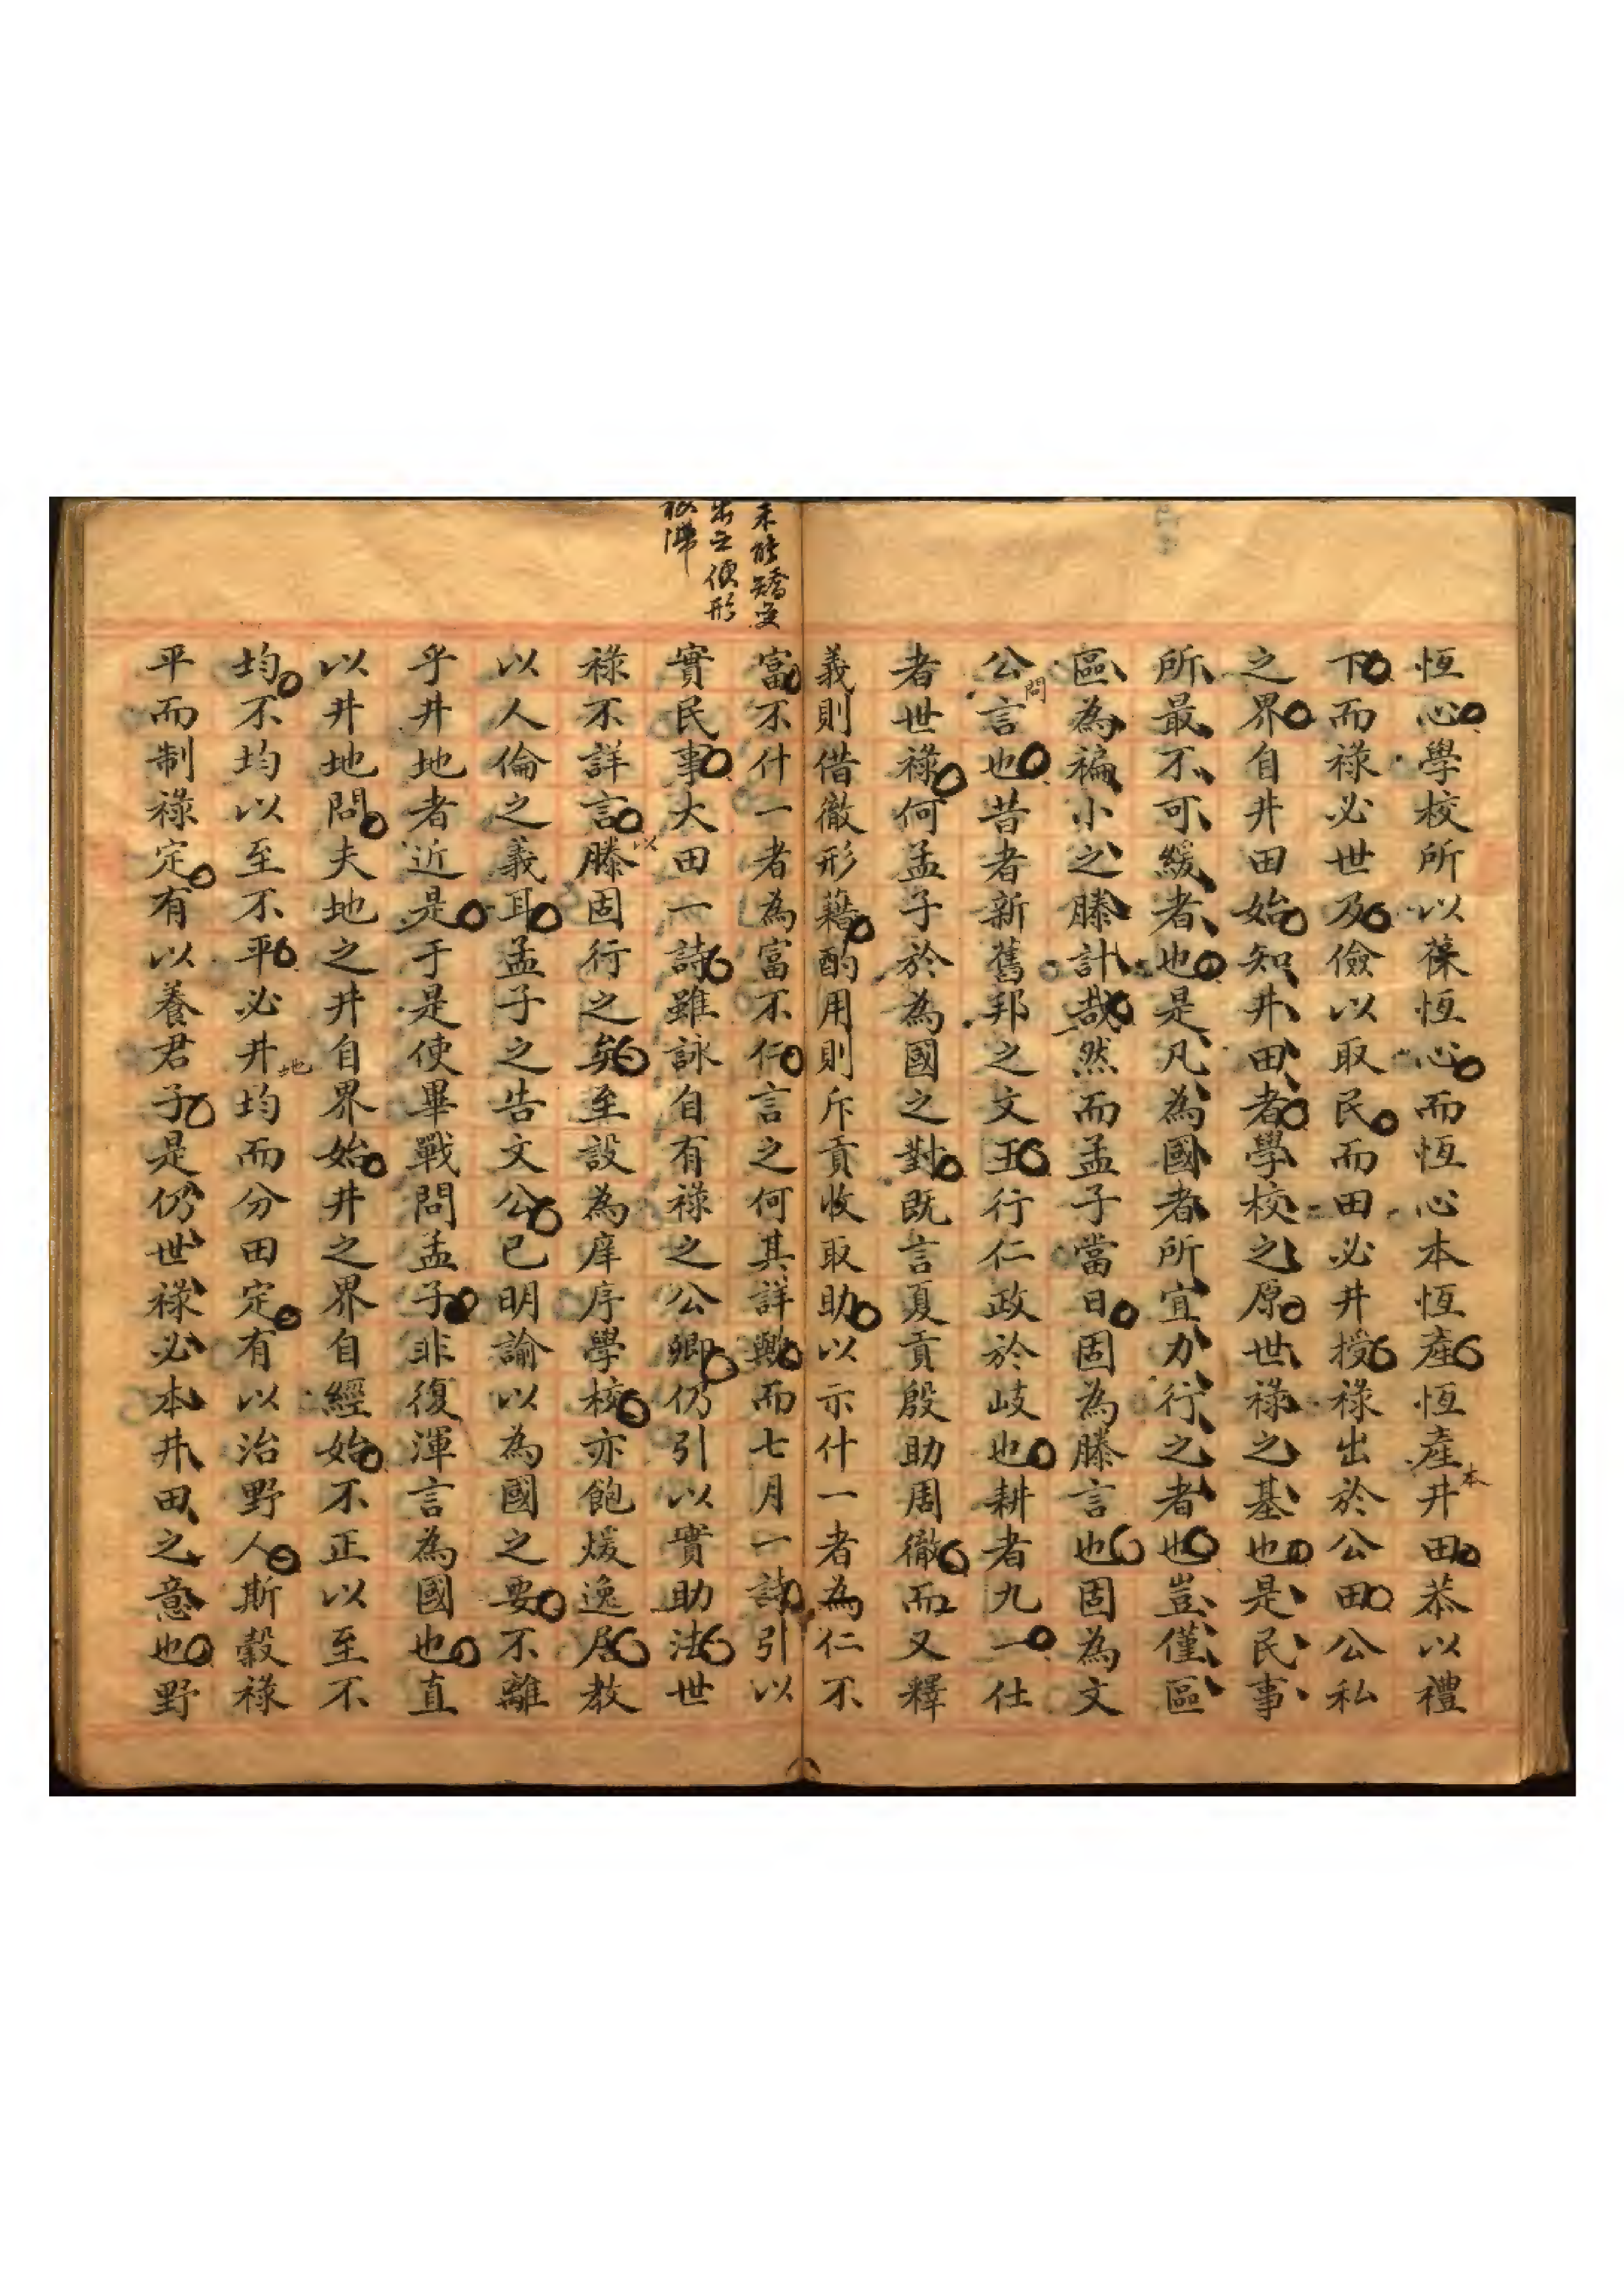 恆心學校所以葆恆心而恆心本恆產恆產本井田恭以禮
下而祿必世及儉以取民而田必井授祿出於公田公私
之界自井田始知井田者學校之原世祿之基也是民事
所最不可緩者也是凡為國者所宜力行之者也豈僅區
區為褊小之滕計哉然而孟子當日固為滕言也固為文
公問言也昔者新舊邦之文王行仁政於岐也耕者九一仕
者世祿何孟子於為國之對既言夏貢殷助周徹而又釋
義則借徹形藉酌用則斥貢收取助以示什一者為仁不
富不什一者為富不仁言之何其詳歟而七月一詩引以
實民事大田一詩雖詠自有祿之公卿仍引以實助法世
祿不詳言以滕固行之矣至設為庠序學校亦飽煖逸居教
以人倫之義耳孟子之告文公已明諭以為國之要不離
乎井地者近是于是使畢戰問孟子非復渾言為國也直
以井地問夫地之井自界始井之界自經始不正以至不
均不均以至不平必井地均而分田定有以治野人斯穀祿
平而制祿定有以養君子是仍世祿必本井田之意也野
未能矯變
出之便形